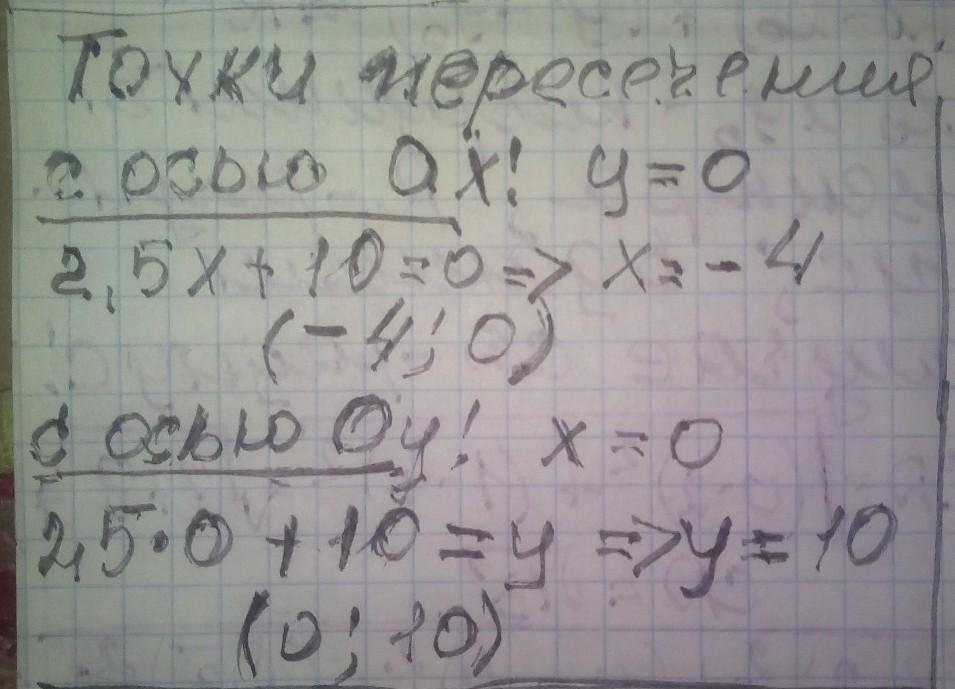 Точки пересечения
с осью Ох: y=0
2,5x+10=0=> x=-4
(-4; 0)
с осью Оу: x=0
2,5·0+10=y =>y=10
(0; 10)